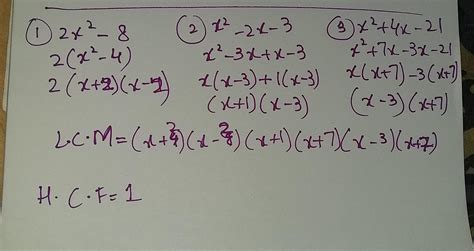 ① 2x² - 8
2(x² - 4)
2(x+2)(x-2)
② x² - 2x - 3
x² - 3x + x - 3
x(x-3)+1(x-3)
(x+1)(x-3)
③ x² + 4x - 21
x² + 7x - 3x - 21
x(x+7) - 3(x+7)
(x-3)(x+7)
L.C.M = (x+2)(x-2)(x+1)(x+7)(x-3)(x+7)
H.C.F = 1